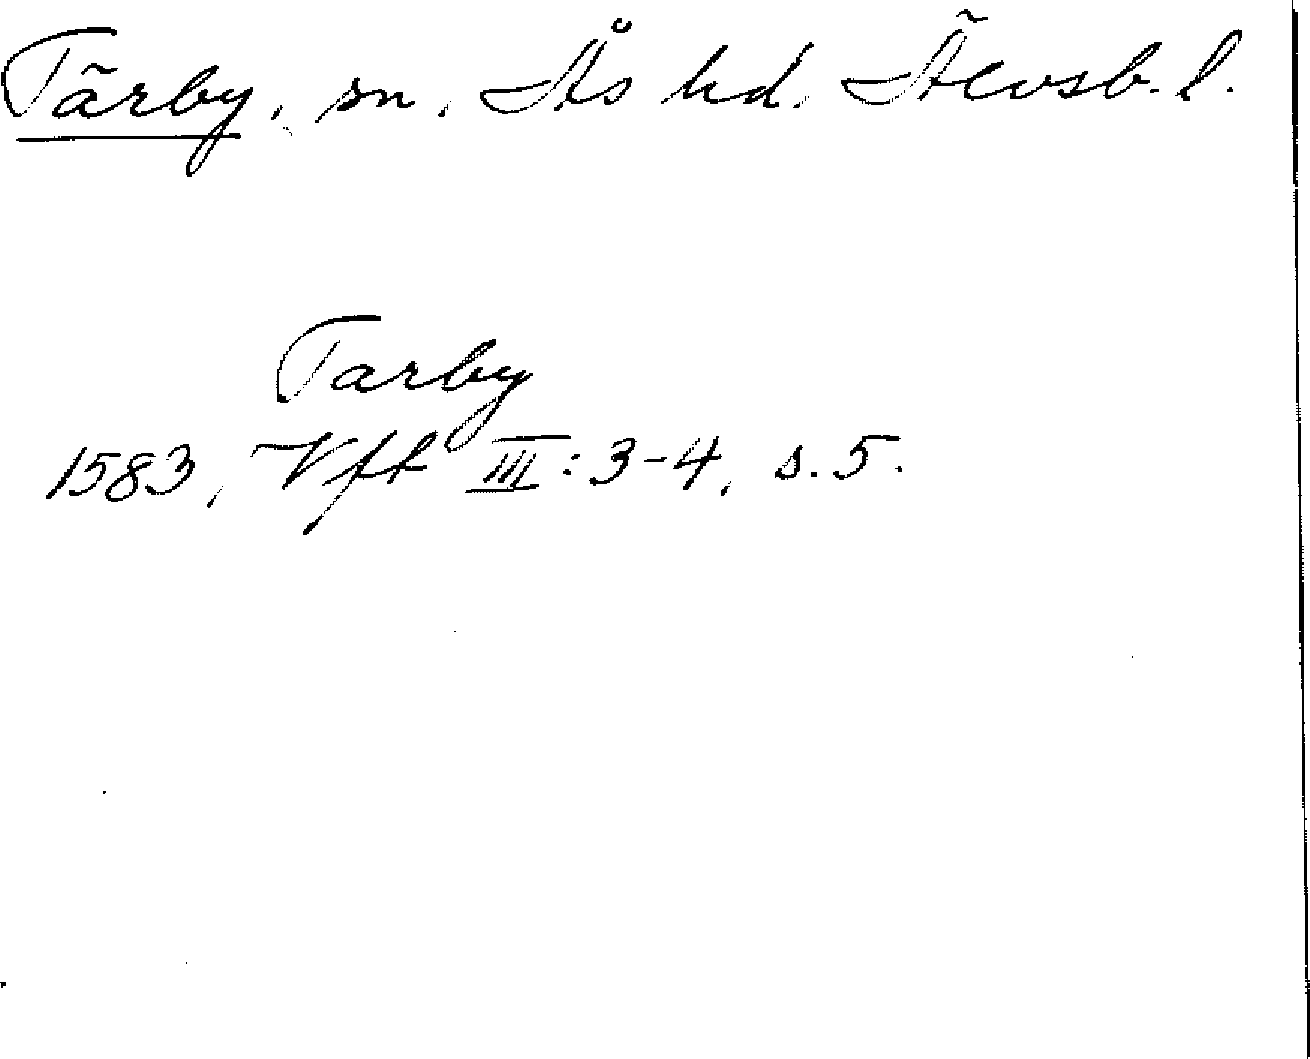 Tärby, sn. Ås hd. Älvsb. l.
Tarby
1583, Vft III: 3-4, s. 5.